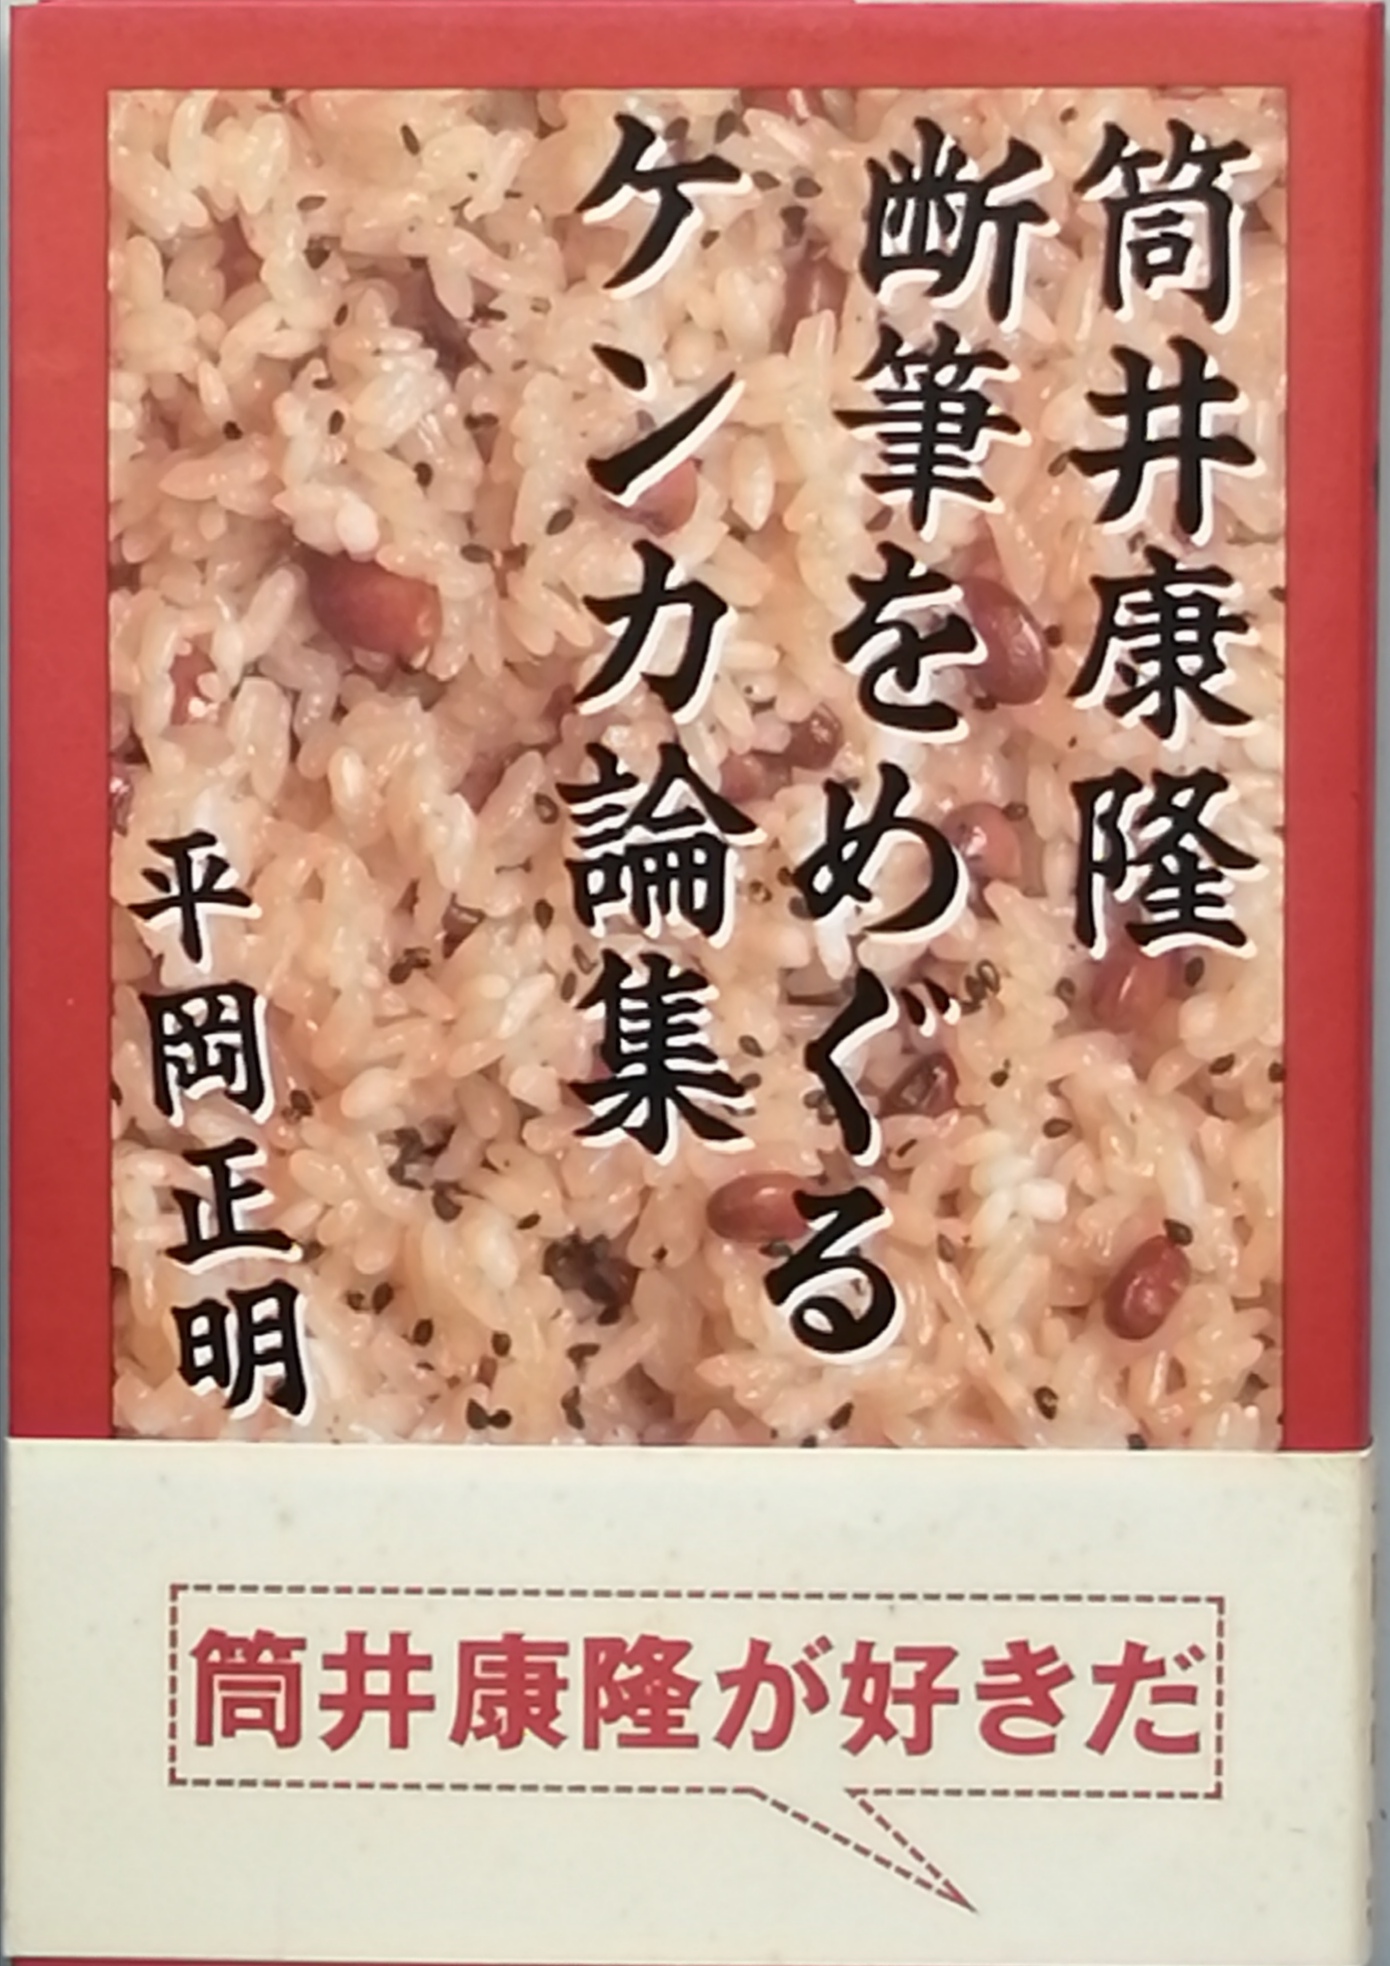 筒井康隆
断筆をめぐる
ケンカ論集
平岡正明
筒井康隆が好きだ